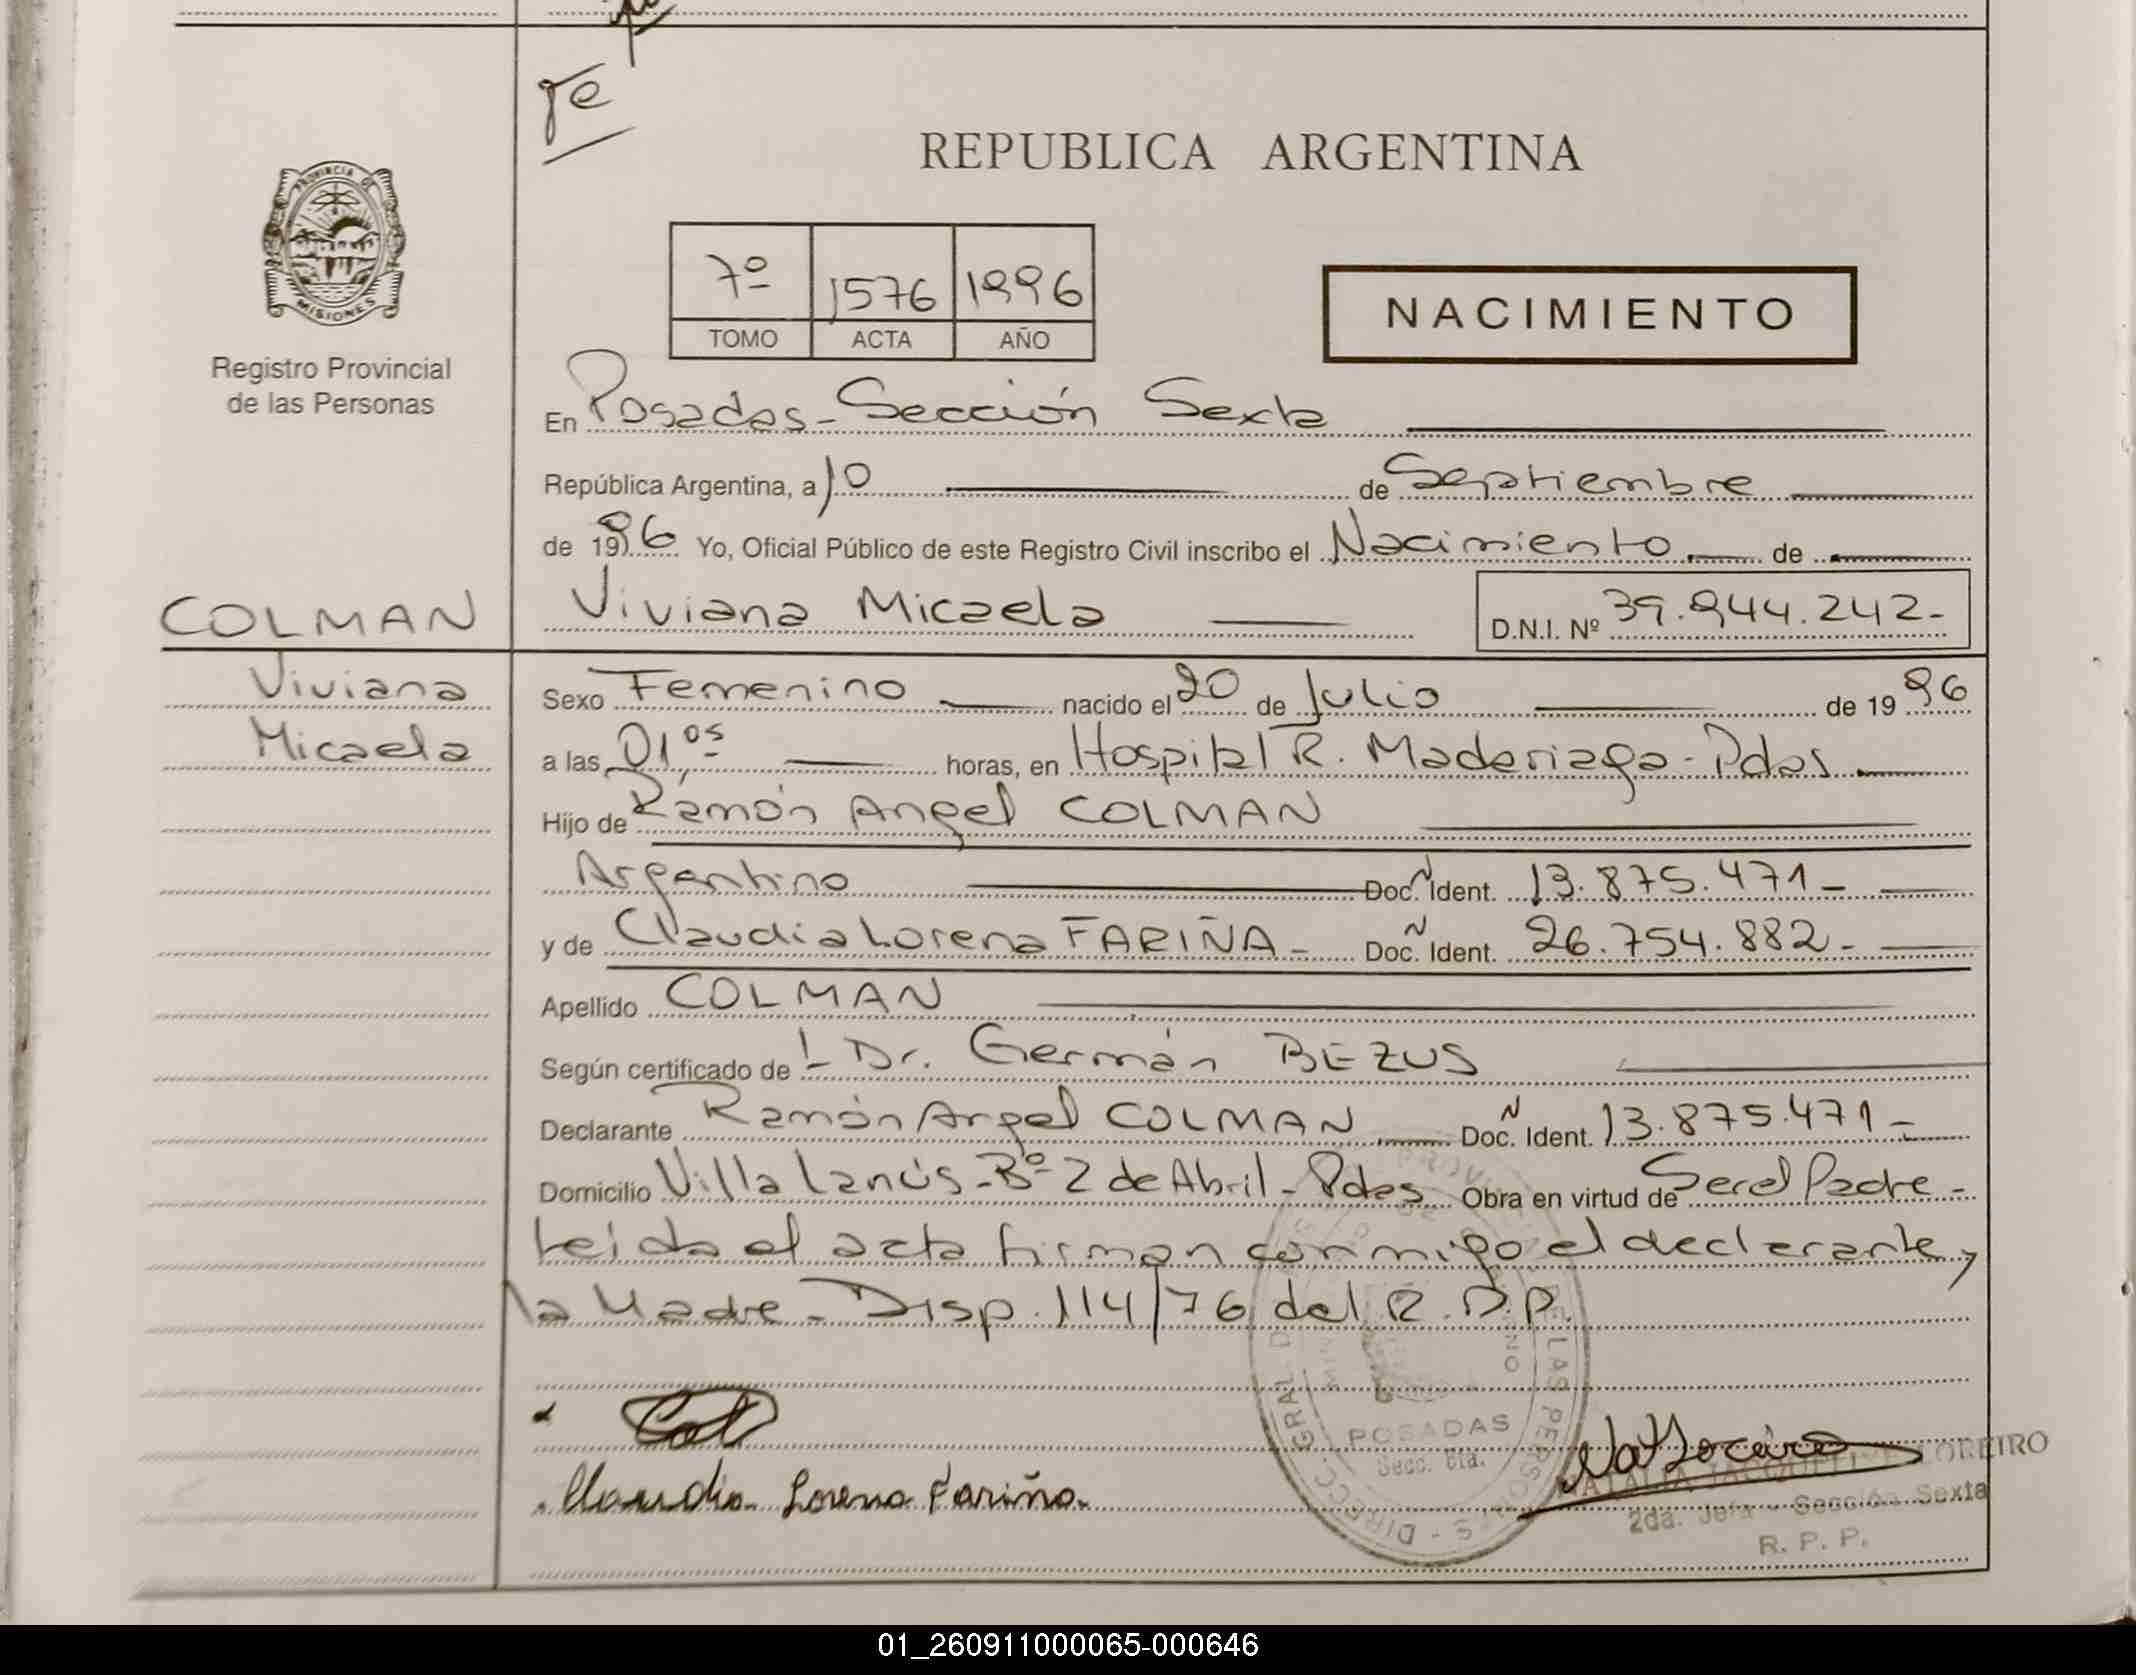 REPUBLICA ARGENTINA
PROVINCIA DE
MISIONES
Registro Provincial
de las Personas
7º 1576 1996
TOMO ACTA AÑO
NACIMIENTO
En Posadas - Sección Sexta
República Argentina, a 10 de Septiembre
de 1996 Yo, Oficial Público de este Registro Civil inscribo el Nacimiento de
COLMAN Viviana Micaela D.N.I. Nº 39.944.242-
Viviana
Micaela
Sexo Femenino nacido el 20 de Julio de 1996
a las 01,05 horas, en Hospital R. Madariaga - Pdas
Hijo de Ramón Angel COLMAN
Argentino Doc. Ident. 13.875.471-
y de Claudia Lorena FARIÑA - Doc. Ident. 26.754.882-
Apellido COLMAN
Según certificado de l Dr. Germán BEZUS
Declarante Ramón Angel COLMAN Doc. Ident. 13.875.471-
Domicilio Villa Lanús - Bº 2 de Abril - Pdas Obra en virtud de Ser el Padre -
Leida el acta firman conmigo el declarante y
la Madre - Disp. 114/76 del R.P.P.
Col
Claudia Lorena Fariña.
POSADAS
Secc. 6ta.
LOREIRO
2da. Jefa - Sección Sexta
R. P. P.
01_260911000065-000646